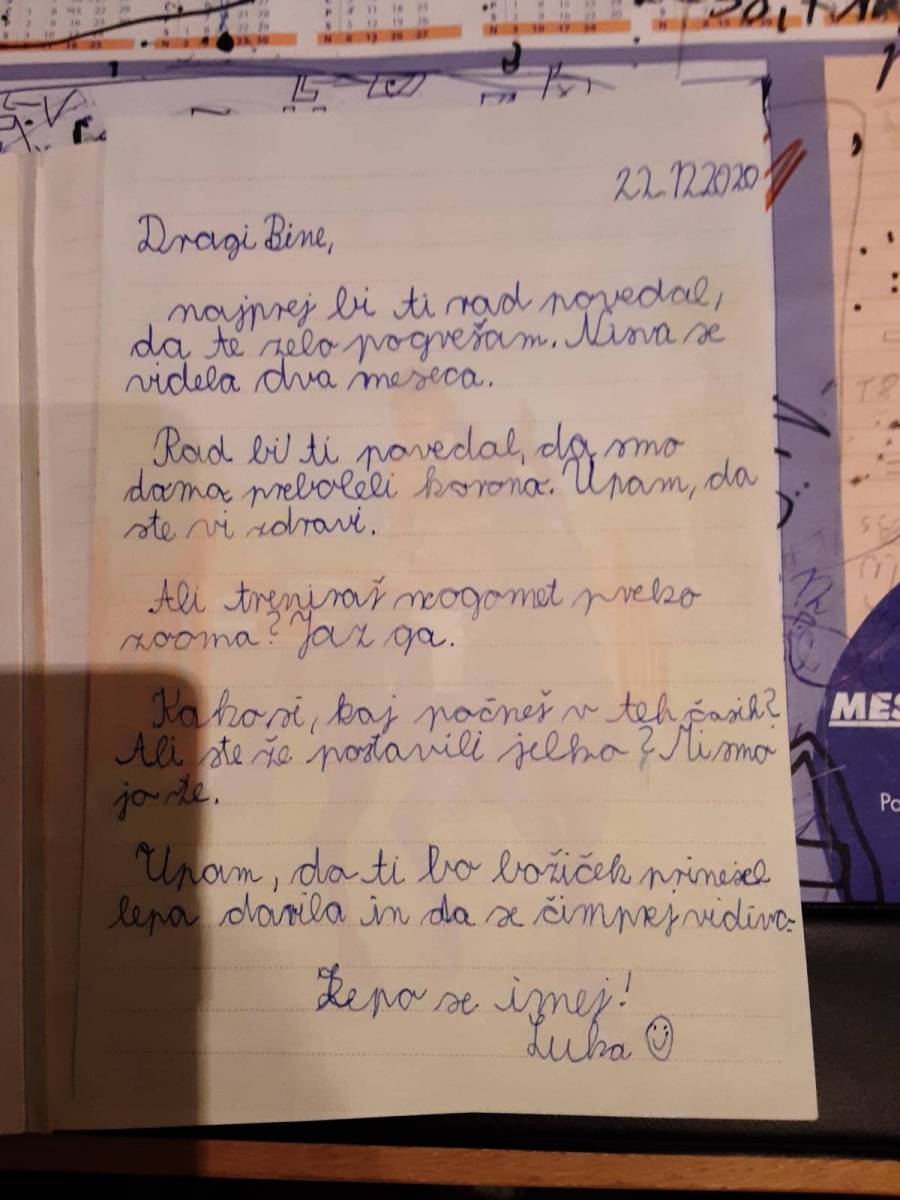 22.12.2020
Dragi Bine,
najprej bi ti rad povedal,
da te zelo pogrešam. Nisva se
videla dva meseca.
Rad bi ti povedal, da smo
doma preboleli korona. Upam, da
ste vi zdravi.
Ali treniraš nogomet preko
zooma? Jaz ga.
Kako si, kaj počneš v teh časih?
Ali ste že postavili jelko? Mi smo
jo že.
Upam, da ti bo božiček prinesel
lepa darila in da se čimprej vidiva.
Lepo se imej!
Luka
MES